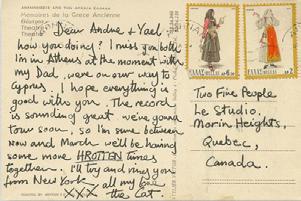 ANAKREONTE AND THE APHIA
Mémoires de la Grèce Ancienne
Théâtre
Dear Andre + Yael.
how you doing? I miss you both
I'm in Athens at the moment with
my Dad, were on our way to
Cyprus. I hope everything is
good with you. The record
is sounding great we're gonna
tour soon, so I'm sure between
now and March we'll be having
some more HROTTEN times
together. I'll try and ring you
from New York, all my love
XXX the Cat.
ΕΛΛΑΣ HELLAS
ΕΛΛΑΣ HELLAS
Two Fine People
Le Studio,
Morin Heights,
Quebec,
Canada.